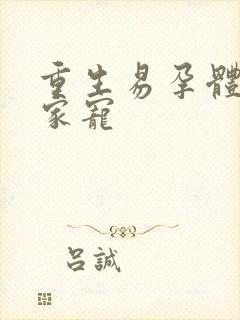 重生易孕體
家寵
呂誠